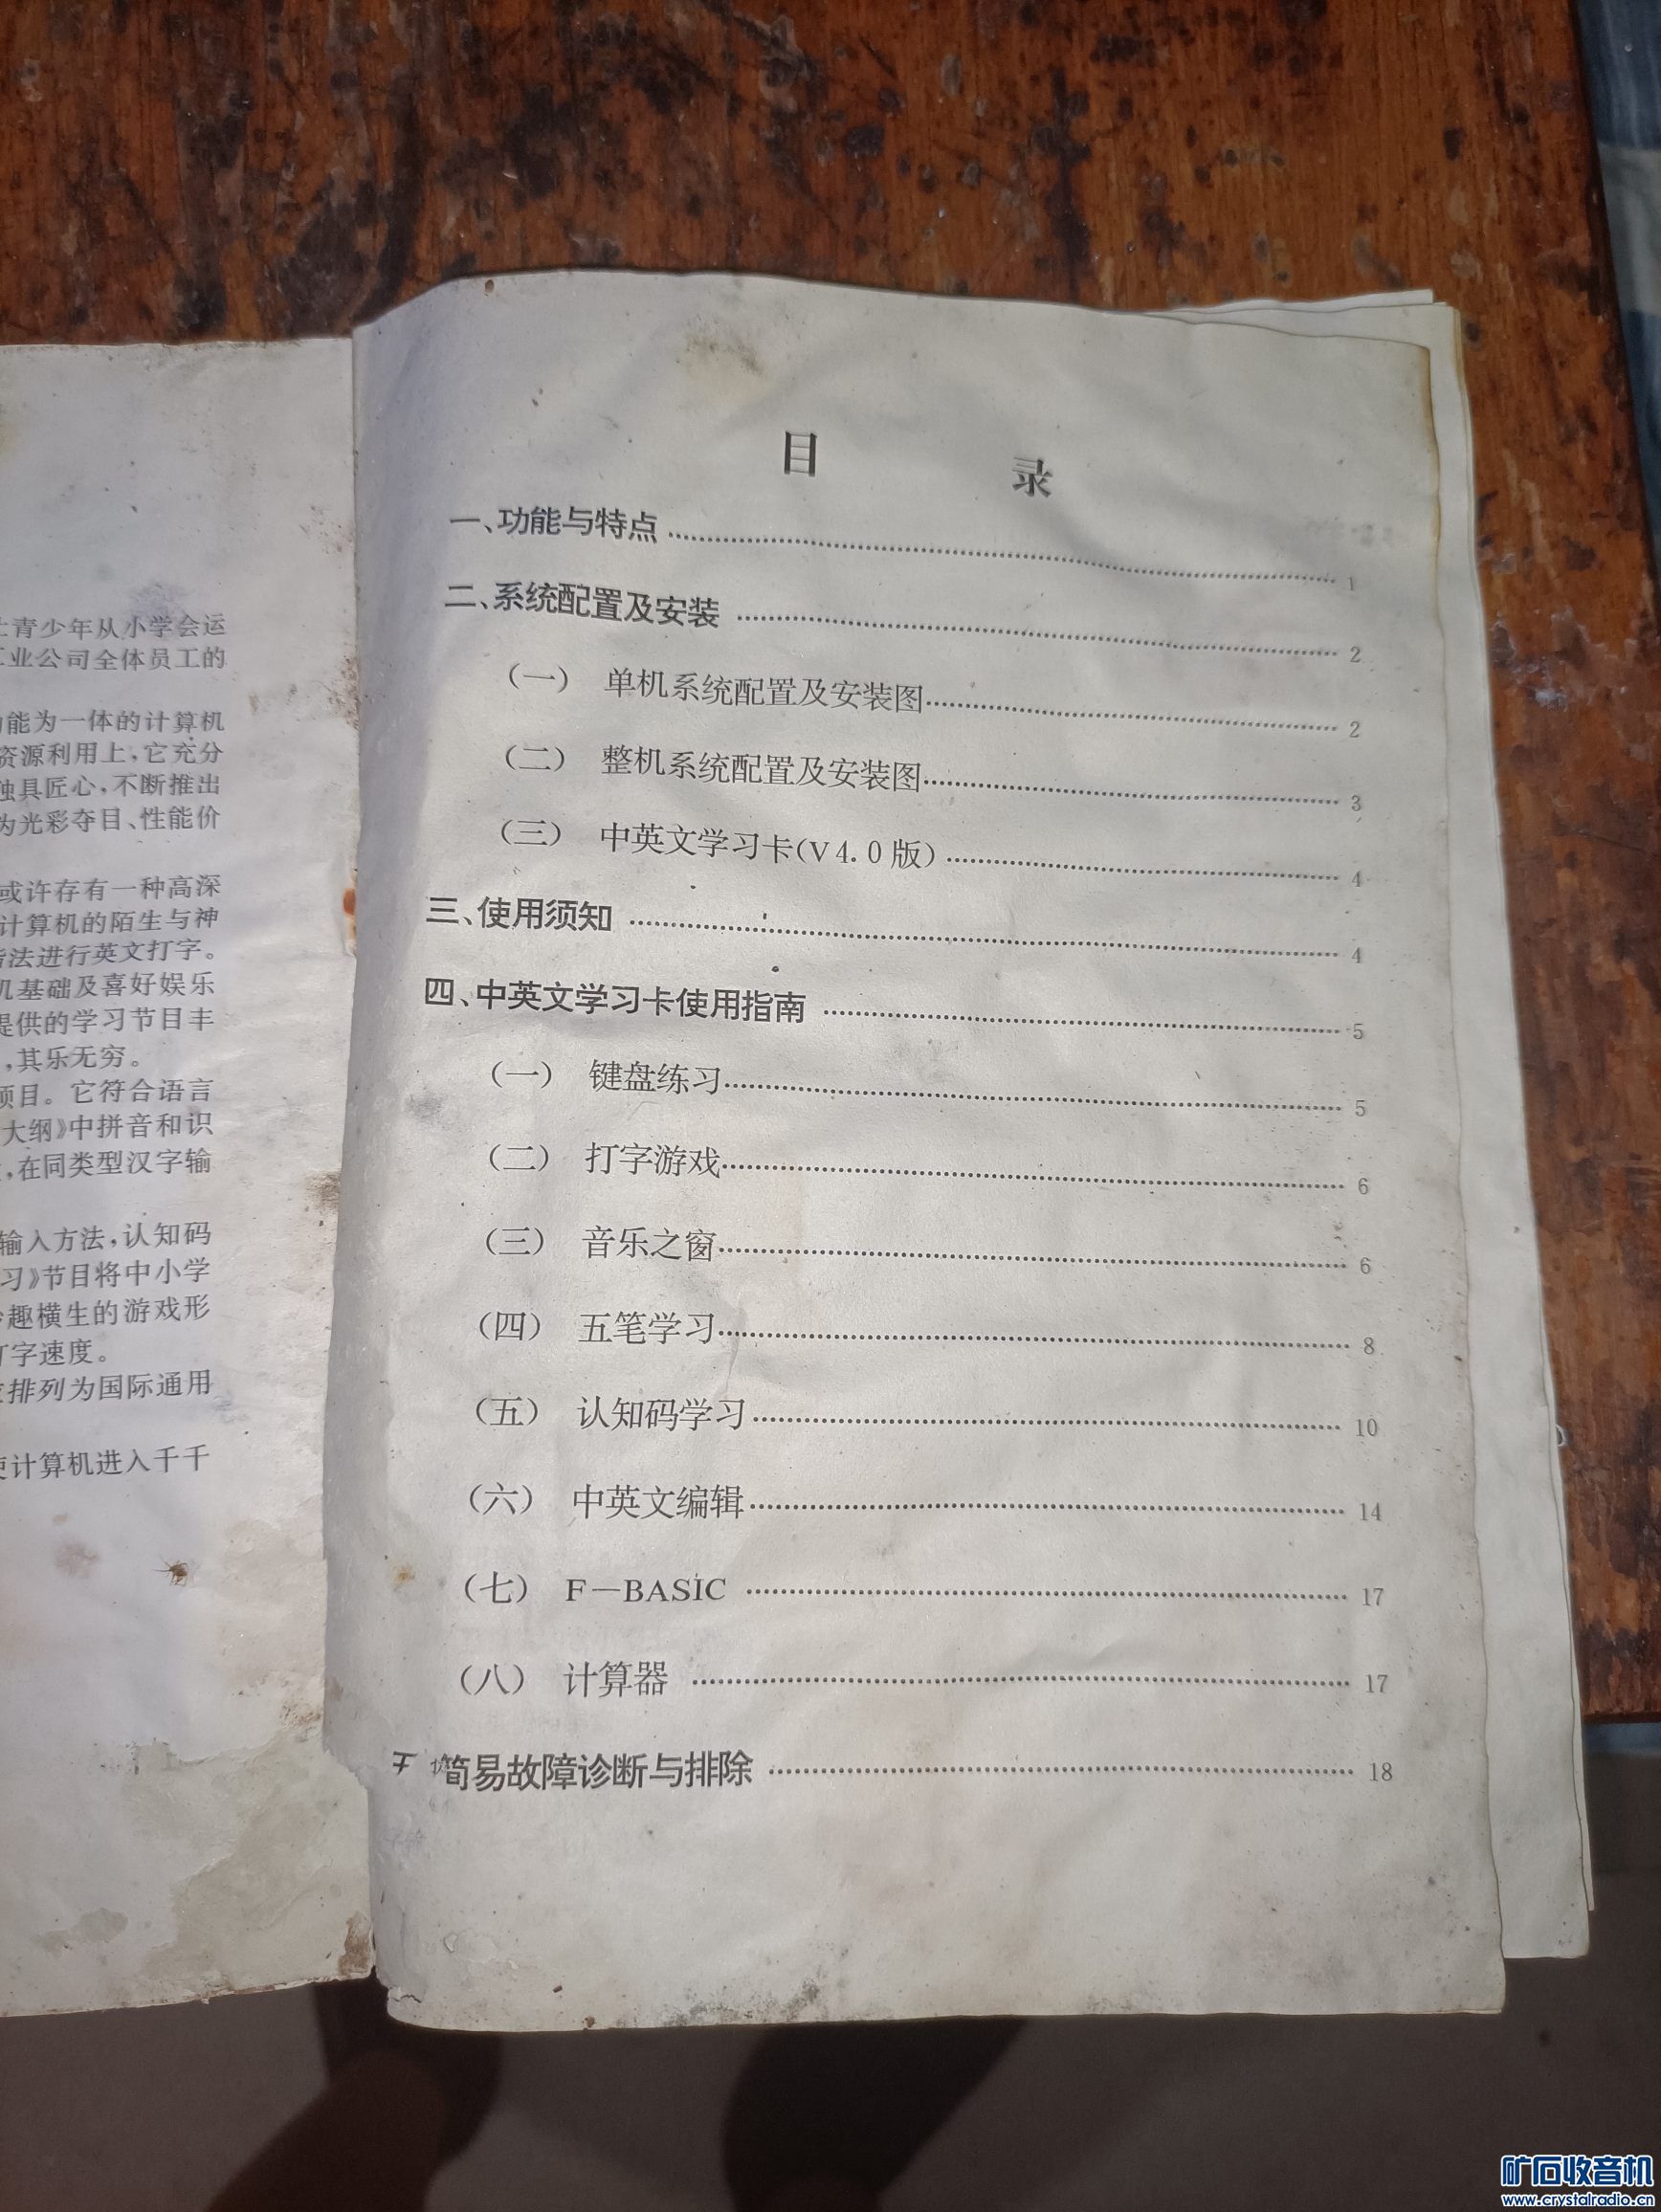 青少年从小学会运
业公司全体员工的
能为一体的计算机
资源利用上,它充分
独具匠心,不断推出
为光彩夺目、性能价
或许存有一种高深
计算机的陌生与神
法进行英文打字。
机基础及喜好娱乐
提供的学习节目丰
,其乐无穷。
项目。它符合语言
大纲》中拼音和识
,在同类型汉字输
输入方法,认知码
习》节目将中小学
趣横生的游戏形
打字速度。
排列为国际通用
使计算机进入千千
目 录
一、功能与特点 …… 1
二、系统配置及安装 …… 2
(一) 单机系统配置及安装图 …… 2
(二) 整机系统配置及安装图 …… 3
(三) 中英文学习卡(V4.0版) …… 4
三、使用须知 …… 4
四、中英文学习卡使用指南 …… 5
(一) 键盘练习 …… 5
(二) 打字游戏 …… 6
(三) 音乐之窗 …… 6
(四) 五笔学习 …… 8
(五) 认知码学习 …… 10
(六) 中英文编辑 …… 14
(七) F—BASIC …… 17
(八) 计算器 …… 17
简易故障诊断与排除 …… 18
矿石收音机
www.crystalradio.cn